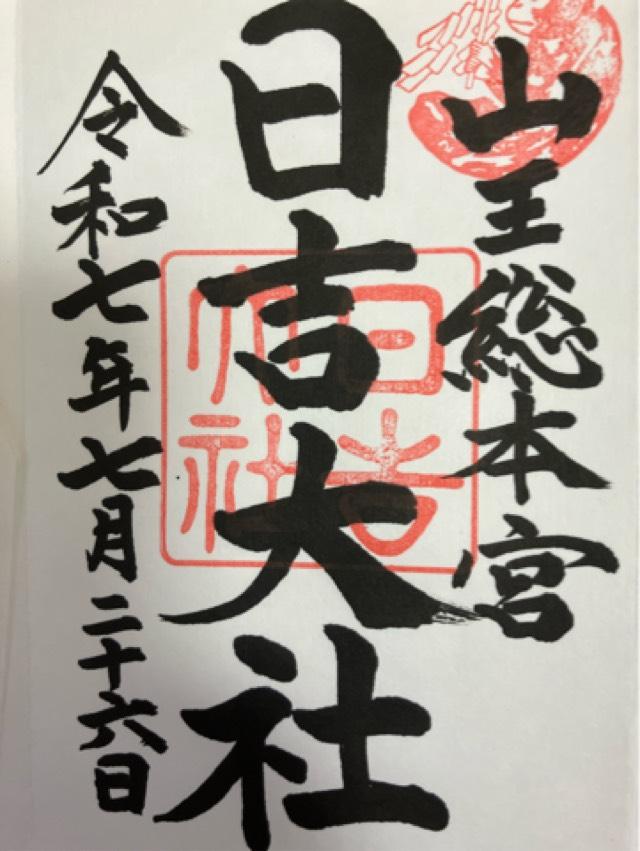 山王総本宮
日吉大社
日吉大社
令和七年七月二十六日